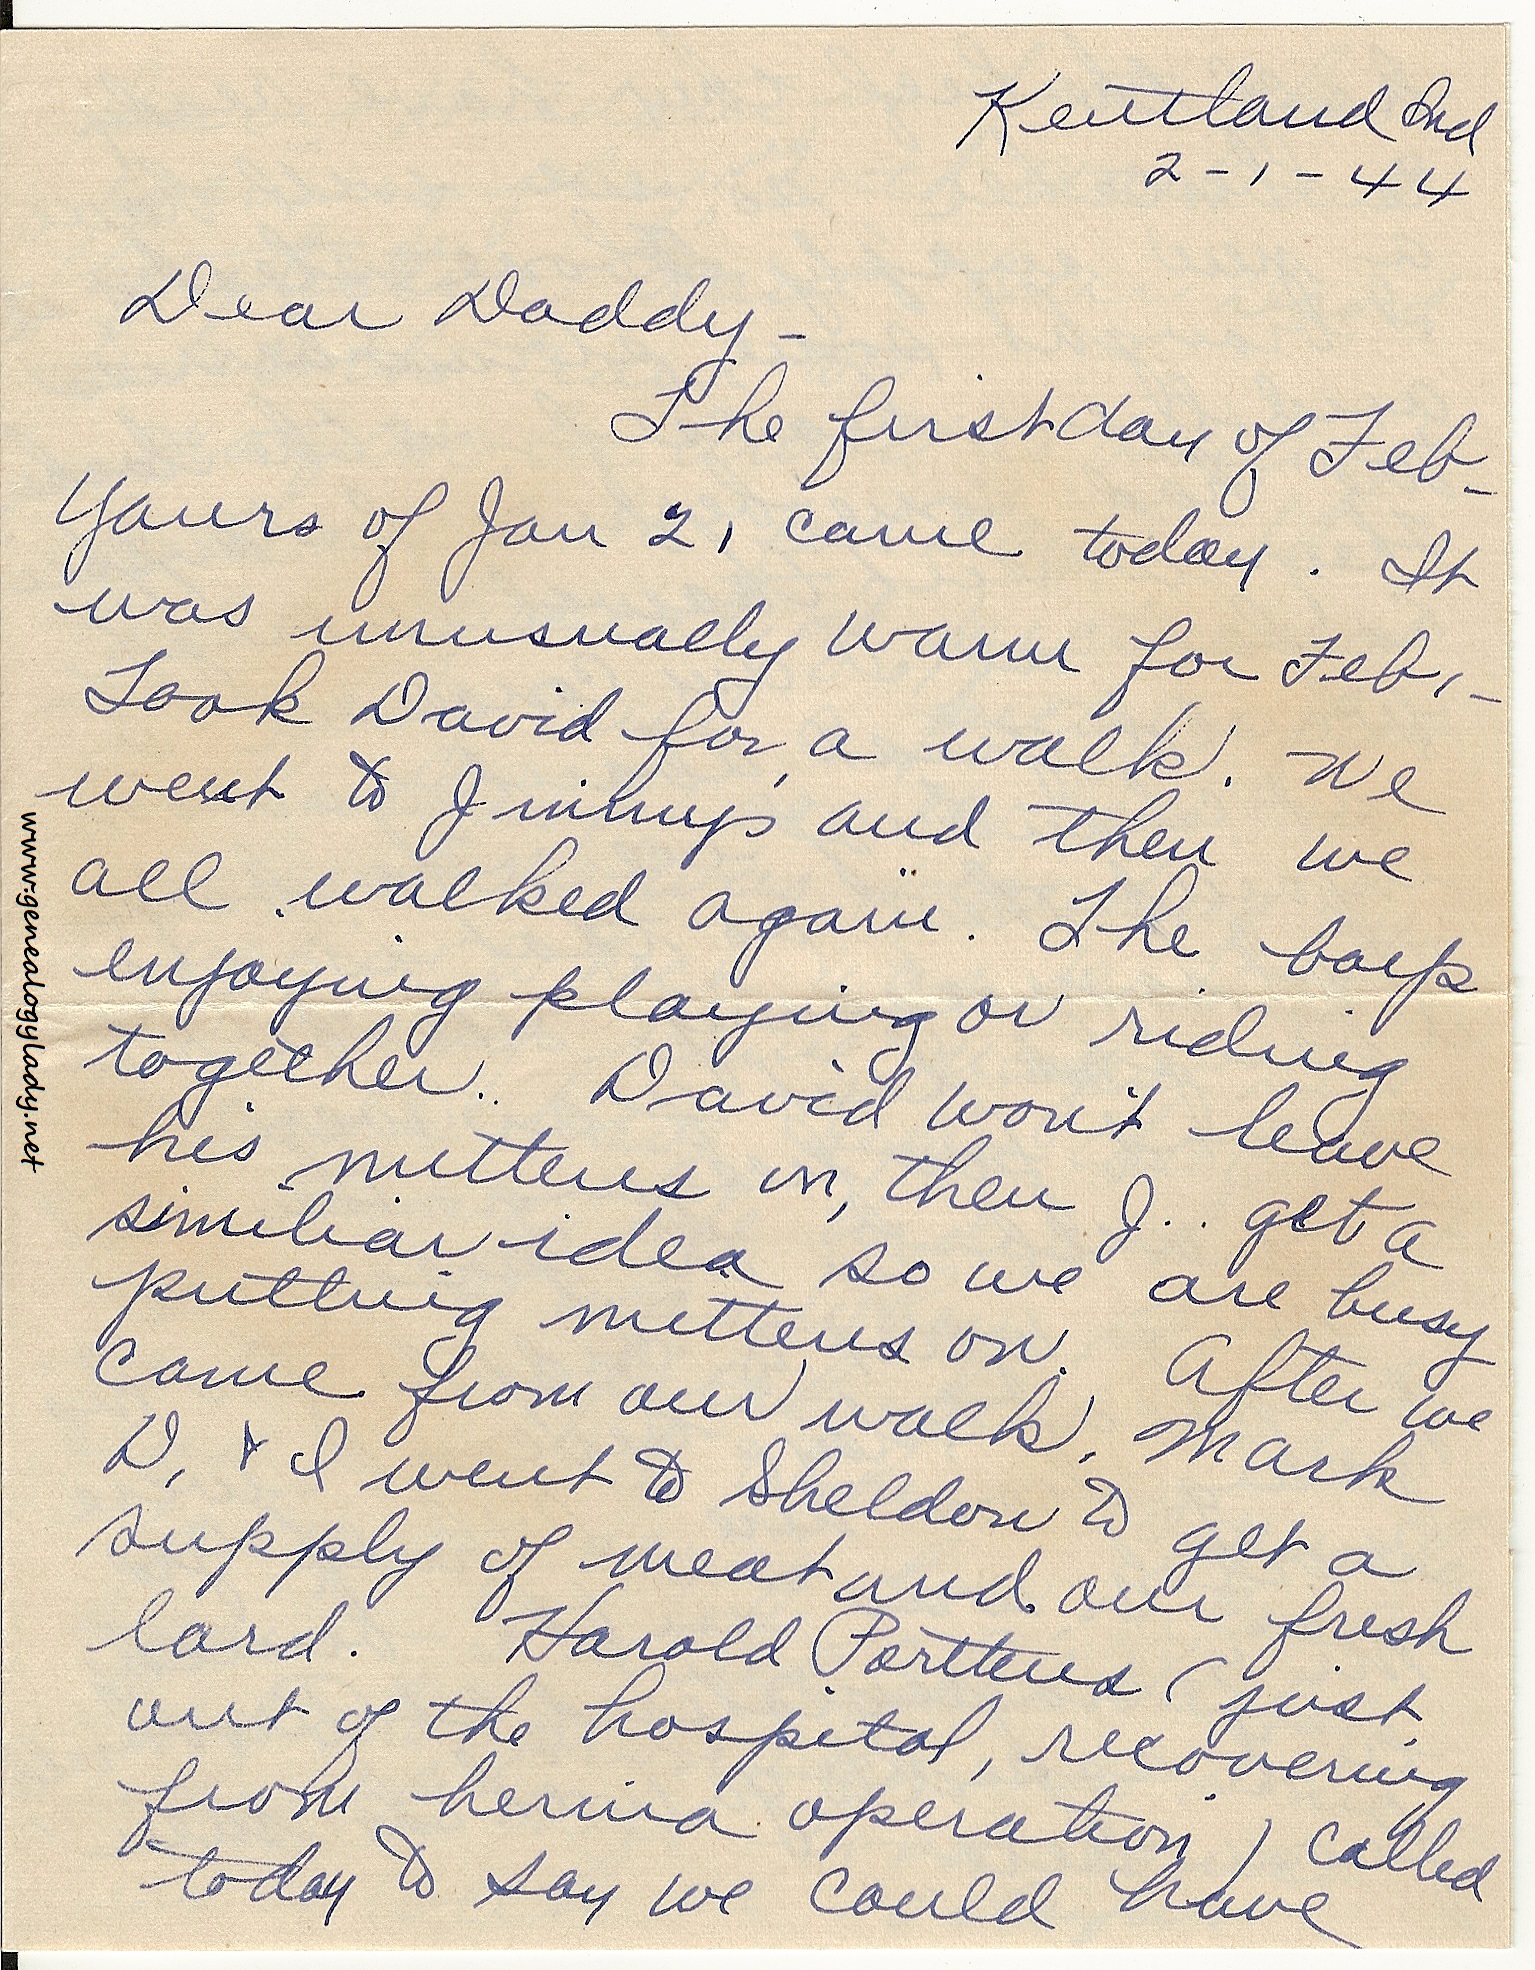 Kentland Ind
2-1-44
Dear Daddy-
The first day of Feb-
Yours of Jan 21 came today. It
was unusually warm for Feb,-
Took David for a walk. We
went to Jimmys and then we
all walked again. The boys
enjoying playing or riding
together.. David won't leave
his mittens on, then J.. get a
similiar idea so we are busy
putting mittens on. After we
came from our walk, Mark
D, & I went to Sheldon to get a
supply of meat and our fresh
lard. Harold Porttens (just
out of the hospital, recovering
from herina operation) called
today to say we could have
www.genealogylady.net